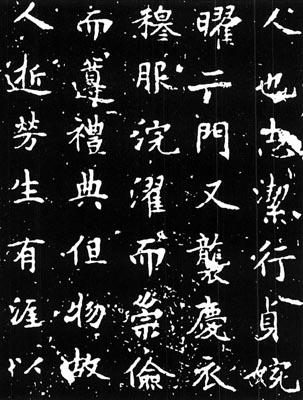 人也志潔行貞婉
曜于門又襲慶衣
穆服浣濯而崇儉
而遵禮典但物故
人逝芳生有涯以